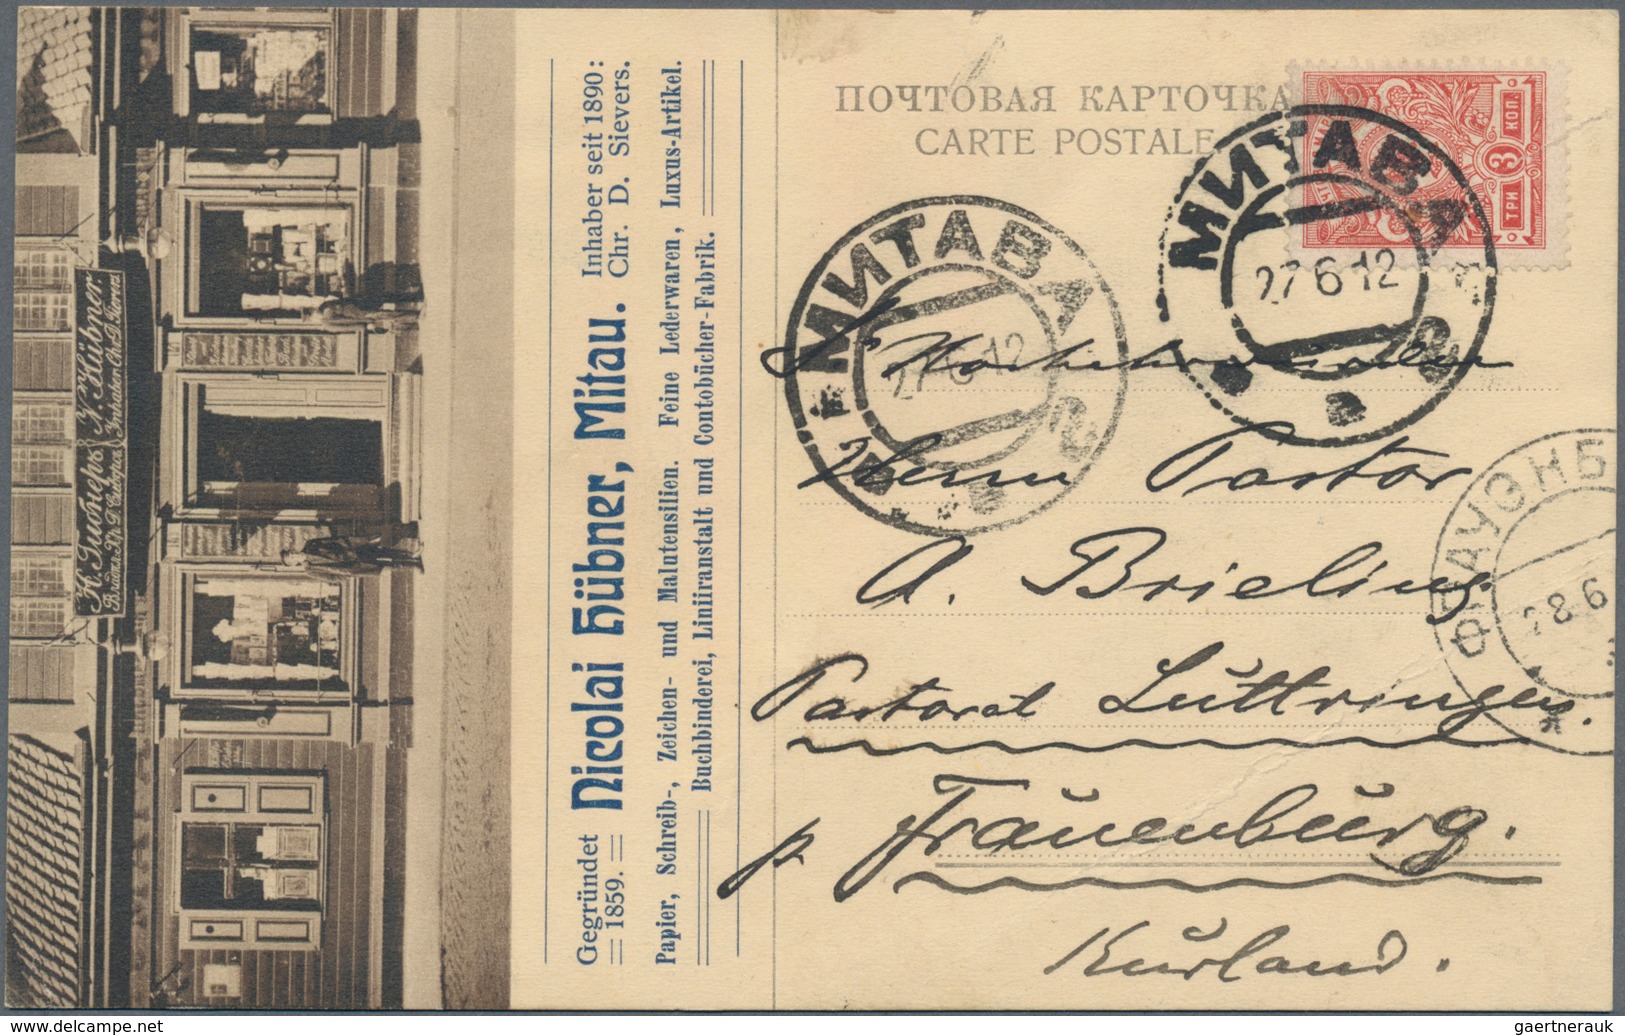 Н. Гюбнеръ N. Hübner.
Inhaber Chr. D. Sievers
Gegründet 1859.
Nicolai Hübner, Mitau.
Inhaber seit 1890:
Chr. D. Sievers.
Papier, Schreib-, Zeichen- und Malutensilien. Feine Lederwaren, Luxus-Artikel.
Buchbinderei, Liniiranstalt und Contobücher-Fabrik.
ПОЧТОВАЯ КАРТОЧКА
CARTE POSTALE
3 КОП.
ТРИ
МИТАВА
27 6 12
МИТАВА
27 6 12
ФРАУЭНБ
28 6
Sr Hochehrwürden
Herrn Pastor
A. Brieling
Pastorat Luttringen.
p. Frauenburg.
Kurland.
gaertnerauk